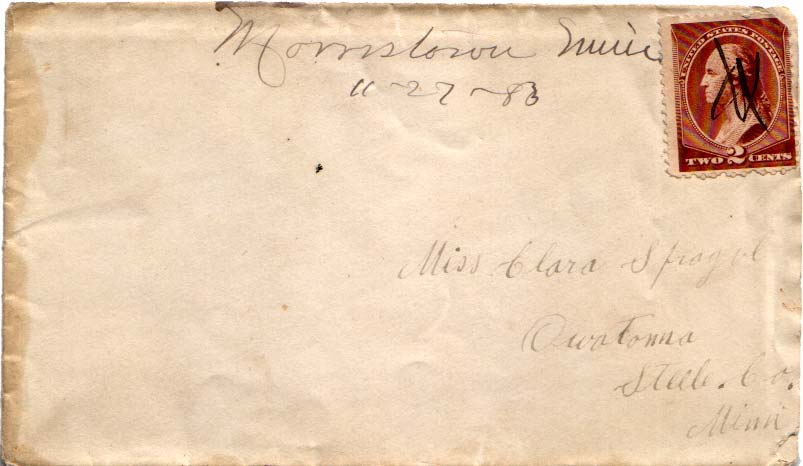 Morristown Minn
11-27-83
UNITED STATES POSTAGE
TWO 2 CENTS
Miss Clara Sprague
Owatonna
Steele. Co.
Minn